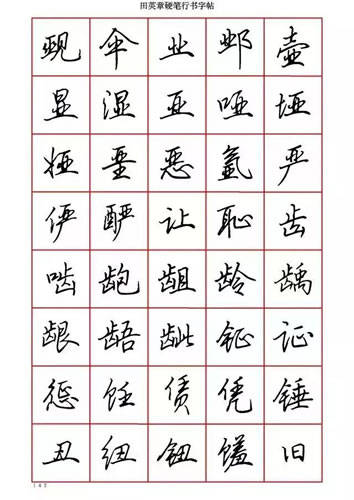 田英章硬笔行书字帖
觋 伞 业 邺 壶
显 湿 亚 哑 垭
娅 垩 恶 氩 严
俨 酽 让 耻 齿
啮 龅 龃 龄 龋
龈 龉 龇 钲 证
惩 饪 赁 凭 锤
丑 纽 钮 馐 旧
142